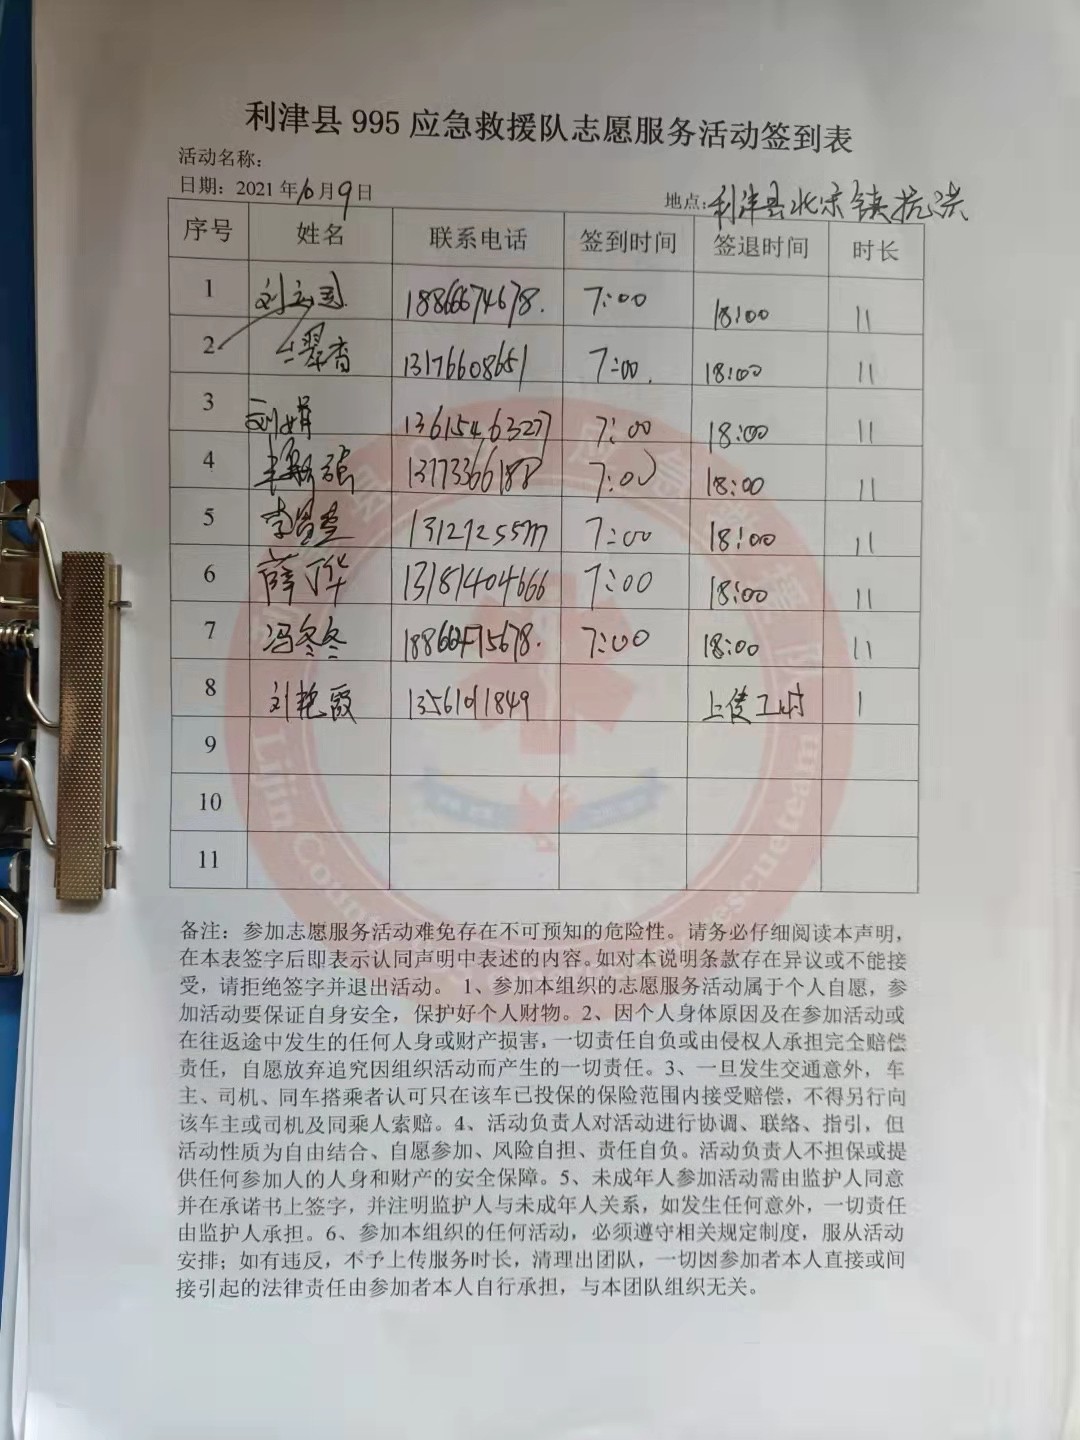 利津县 995 应急救援队志愿服务活动签到表
活动名称：
日期：2021 年10月9日 地点：利津县北宋镇抗洪
序号 姓名 联系电话 签到时间 签退时间 时长
1 刘 18866674678. 7:00 18:00 11
2 翠香 13176608651 7:00. 18:00 11
3 刘娟 13615463277 7:00 18:00 11
4 强 7:00 18:00 11
5 李 7:00 18:00 11
6 薛 13181404666 7:00 18:00 11
7 冯冬冬 7:00 18:00 11
8 刘艳霞 上传工时 1
9
10
11
备注：参加志愿服务活动难免存在不可预知的危险性。请务必仔细阅读本声明，
在本表签字后即表示认同声明中表述的内容。如对本说明条款存在异议或不能接
受，请拒绝签字并退出活动。 1、参加本组织的志愿服务活动属于个人自愿，参
加活动要保证自身安全，保护好个人财物。2、因个人身体原因及在参加活动或
在往返途中发生的任何人身或财产损害，一切责任自负或由侵权人承担完全赔偿
责任，自愿放弃追究因组织活动而产生的一切责任。3、一旦发生交通意外，车
主、司机、同车搭乘者认可只在该车已投保的保险范围内接受赔偿，不得另行向
该车主或司机及同乘人索赔。4、活动负责人对活动进行协调、联络、指引，但
活动性质为自由结合、自愿参加、风险自担、责任自负。活动负责人不担保或提
供任何参加人的人身和财产的安全保障。5、未成年人参加活动需由监护人同意
并在承诺书上签字，并注明监护人与未成年人关系，如发生任何意外，一切责任
由监护人承担。6、参加本组织的任何活动，必须遵守相关规定制度，服从活动
安排；如有违反，不予上传服务时长，清理出团队，一切因参加者本人直接或间
接引起的法律责任由参加者本人自行承担，与本团队组织无关。